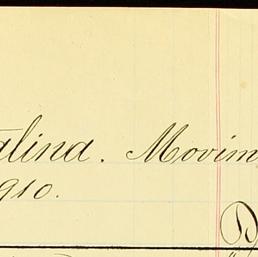 alina. Movim
910.